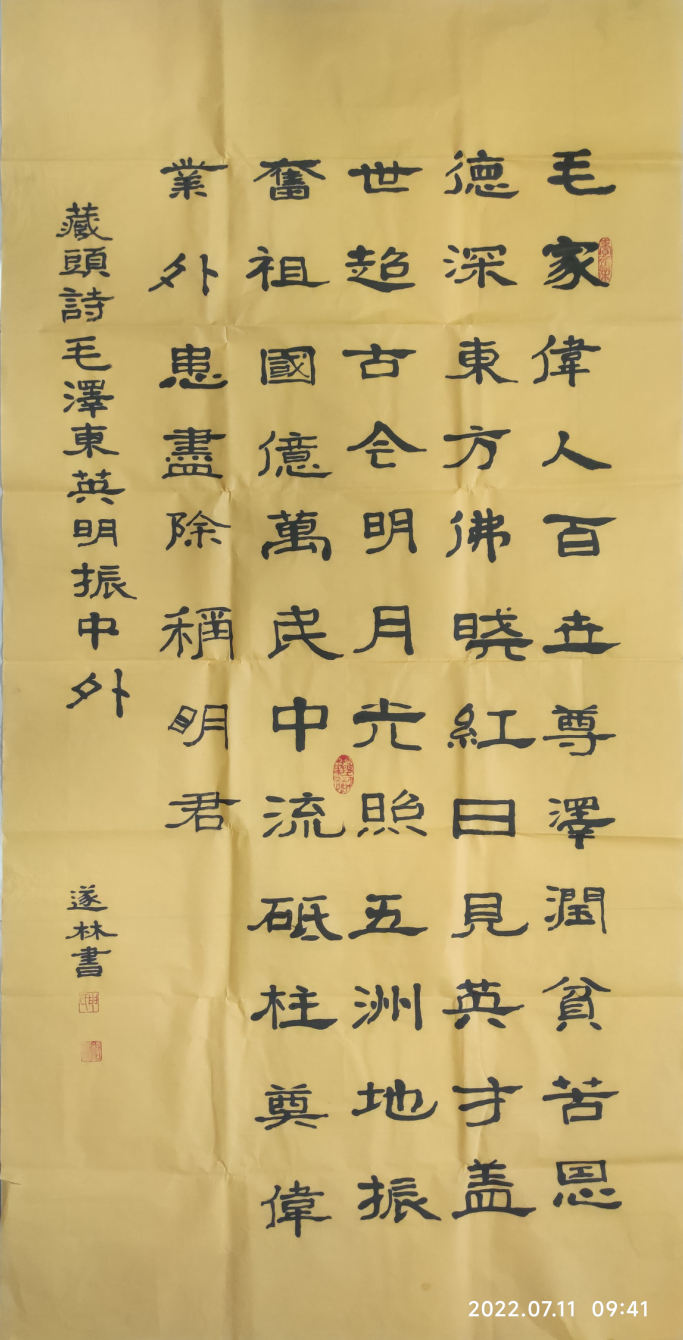 毛家偉人百世尊澤潤貧苦恩
德深東方佛曉紅日見英才蓋
世超古今明月光照五洲地振
奮祖國億萬民中流砥柱奠偉
業外患盡除稱明君
藏頭詩毛澤東英明振中外
遂林書
2022.07.11 09:41